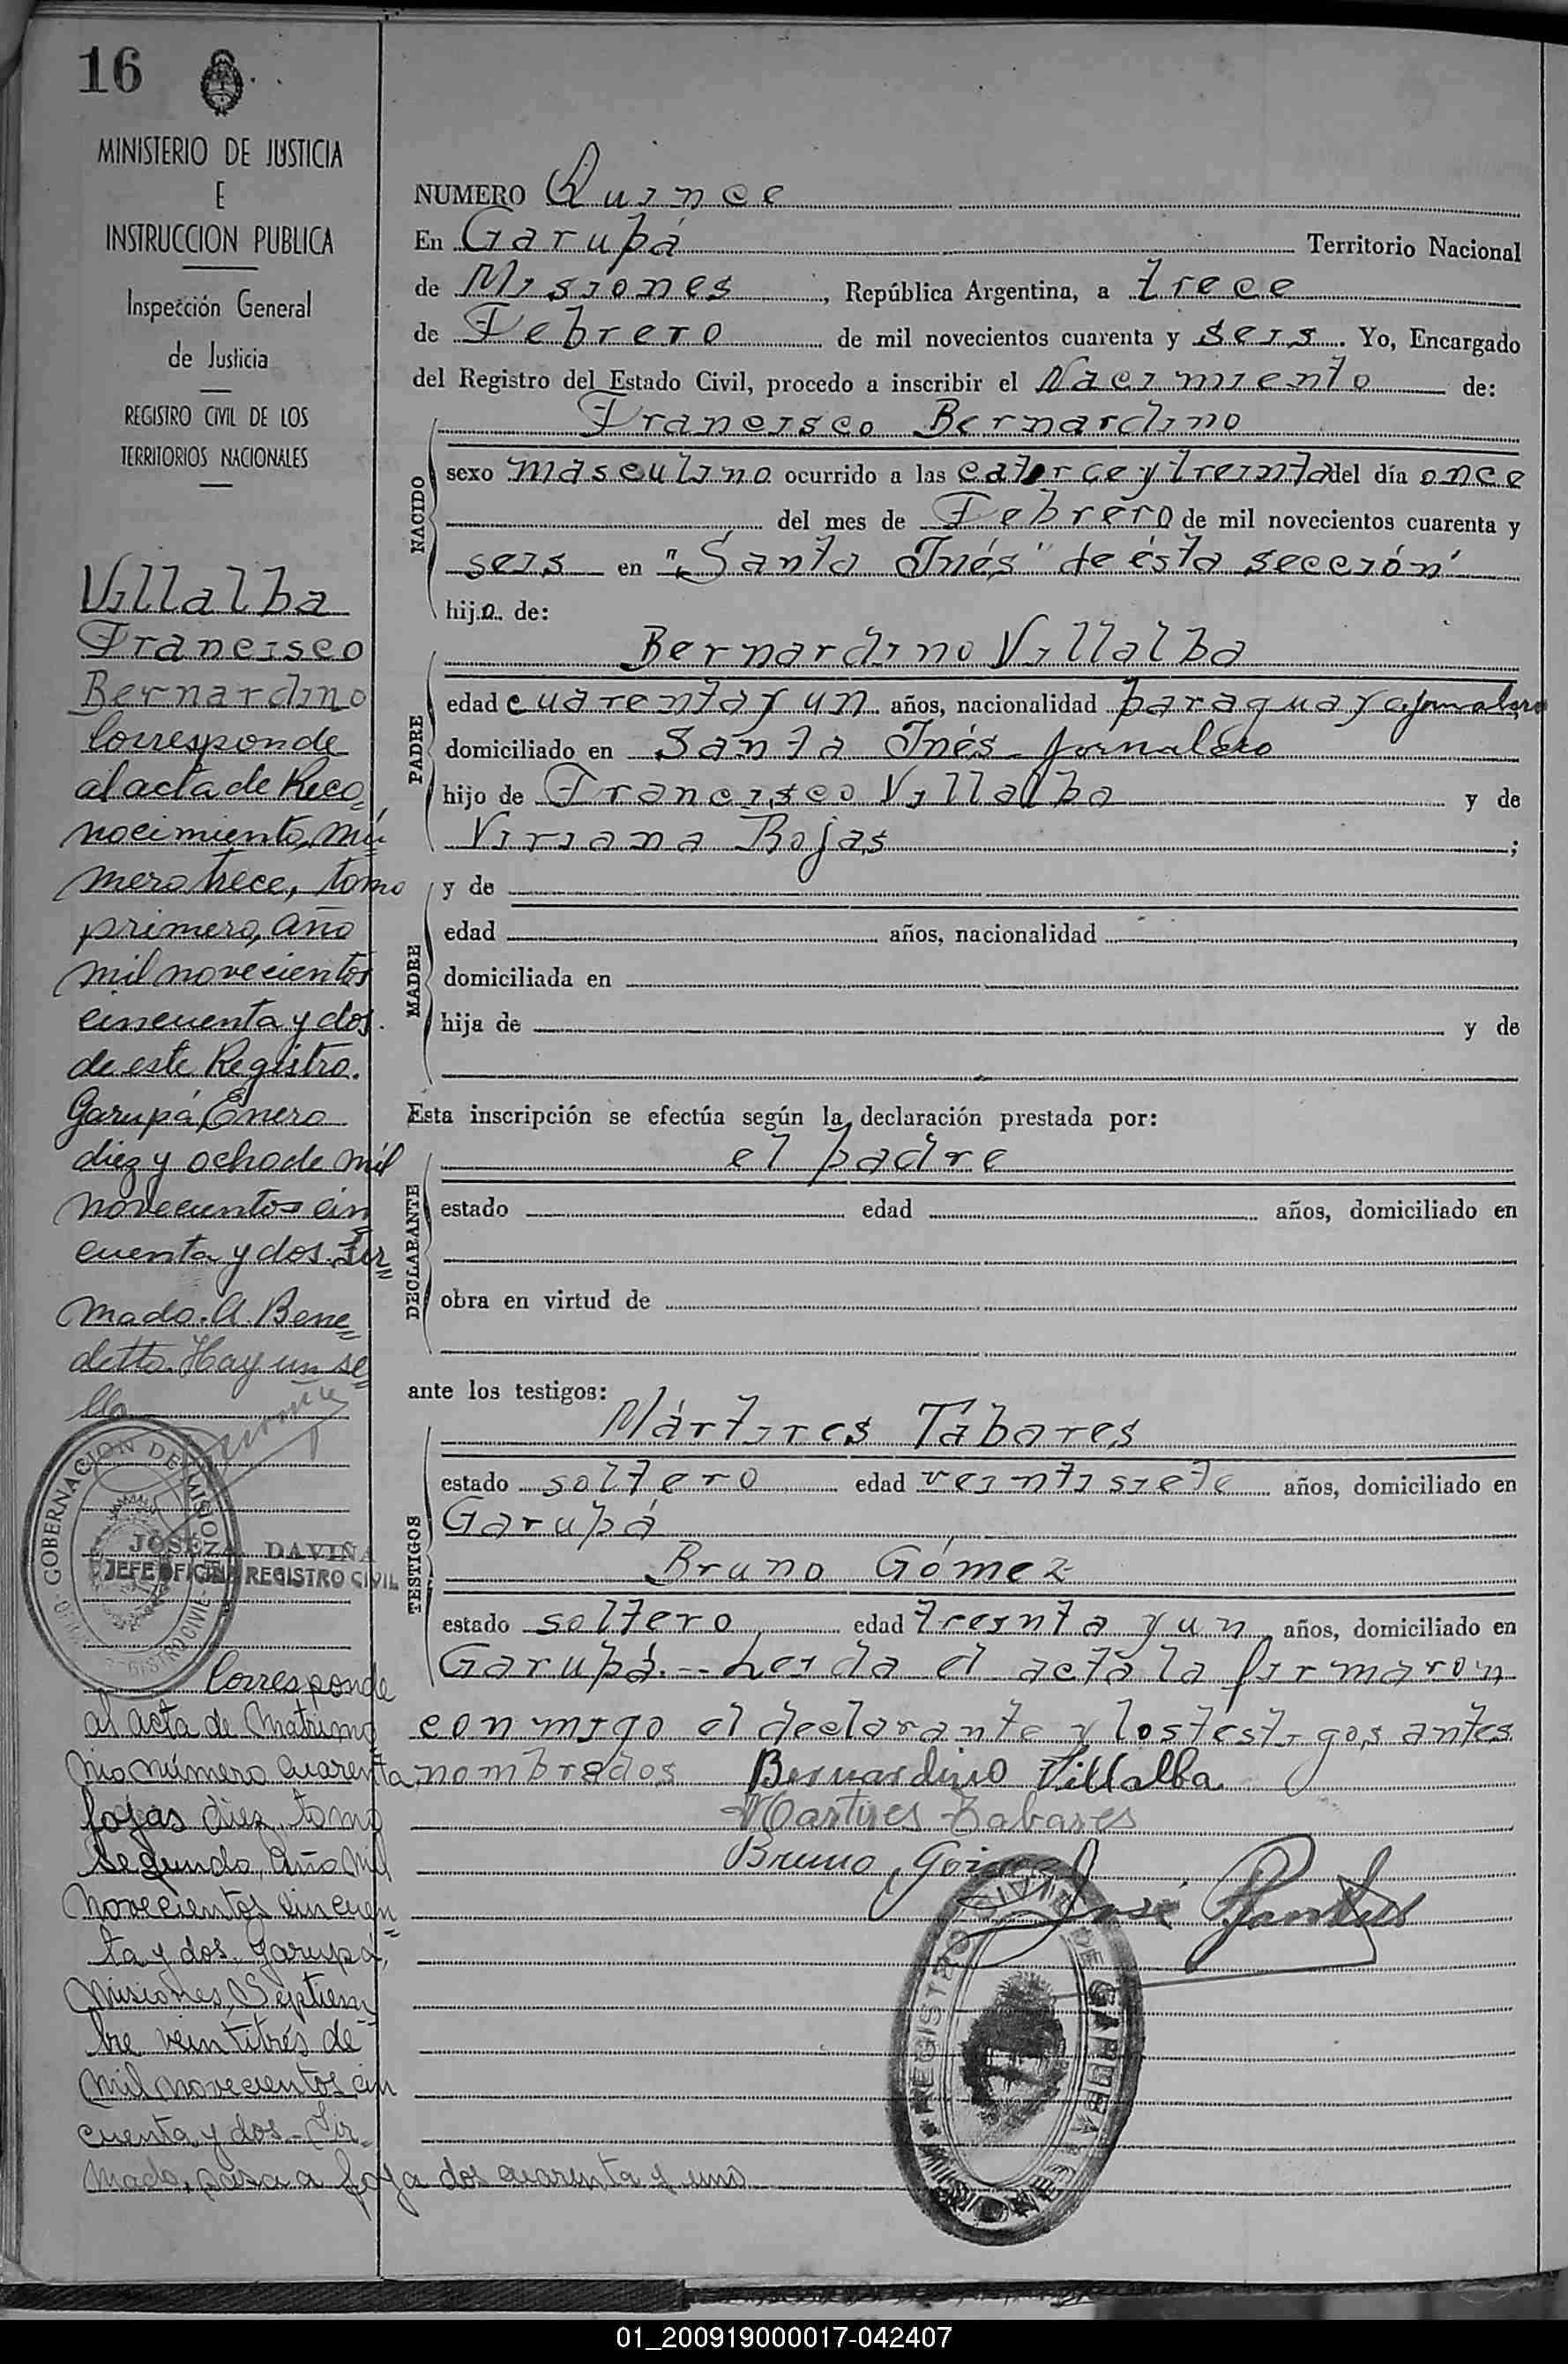 16
MINISTERIO DE JUSTICIA
E
INSTRUCCION PUBLICA
Inspección General
de Justicia
REGISTRO CIVIL DE LOS
TERRITORIOS NACIONALES
Villalba
Francisco
Bernardino
Corresponde
al acta de Reco=
nocimiento, nú=
mero trece, tomo
primero, año
mil novecientos
cincuenta y dos.
de este Registro.
Garupá, Enero
diez y ocho de mil
novecientos cin
cuenta y dos. Fir=
mado. A. Bene=
detto. Hay un se=
llo
GOBERNACION DE MISIONES
REGISTRO CIVIL
JOSE A. DAVIÑA
JEFE OFICINA REGISTRO CIVIL
Corresponde
al acta de Matrimo=
nio número cuarenta,
fojas diez, tomo
segundo, año mil
novecientos cincuen=
ta y dos. Garupá,
Misiones, Septiem=
bre veintitrés de
mil novecientos cin
cuenta y dos.- Fir=
mado, pasa a foja dos cuarenta y uno
NUMERO Quince
En Garupá Territorio Nacional
de Misiones, República Argentina, a trece
de Febrero de mil novecientos cuarenta y seis. Yo, Encargado
del Registro del Estado Civil, procedo a inscribir el Nacimiento de:
NACIDO
Francisco Bernardino
sexo masculino ocurrido a las catorce y treinta del día once
del mes de Febrero de mil novecientos cuarenta y
seis en "Santa Inés" de ésta sección
hijo de:
PADRE
Bernardino Villalba
edad cuarenta y un años, nacionalidad paraguaya jornalero
domiciliado en Santa Inés jornalero
hijo de Francisco Villalba y de
Viriana Rojas;
MADRE
y de
edad años, nacionalidad ,
domiciliada en
hija de y de
Esta inscripción se efectúa según la declaración prestada por:
DECLARANTE
el padre
estado edad años, domiciliado en
obra en virtud de
ante los testigos:
TESTIGOS
Mártires Tabares
estado soltero edad veintisiete años, domiciliado en
Garupá
Bruno Gómez
estado soltero edad treinta y un años, domiciliado en
Garupá.-- Leida el acta la firmaron
conmigo el declarante y los testigos antes
nombrados Bernardino Villalba
Martires Tabares
Bruno Gómez
José
REGISTRO CIVIL DE GARUPA
MISIONES
01_200919000017-042407